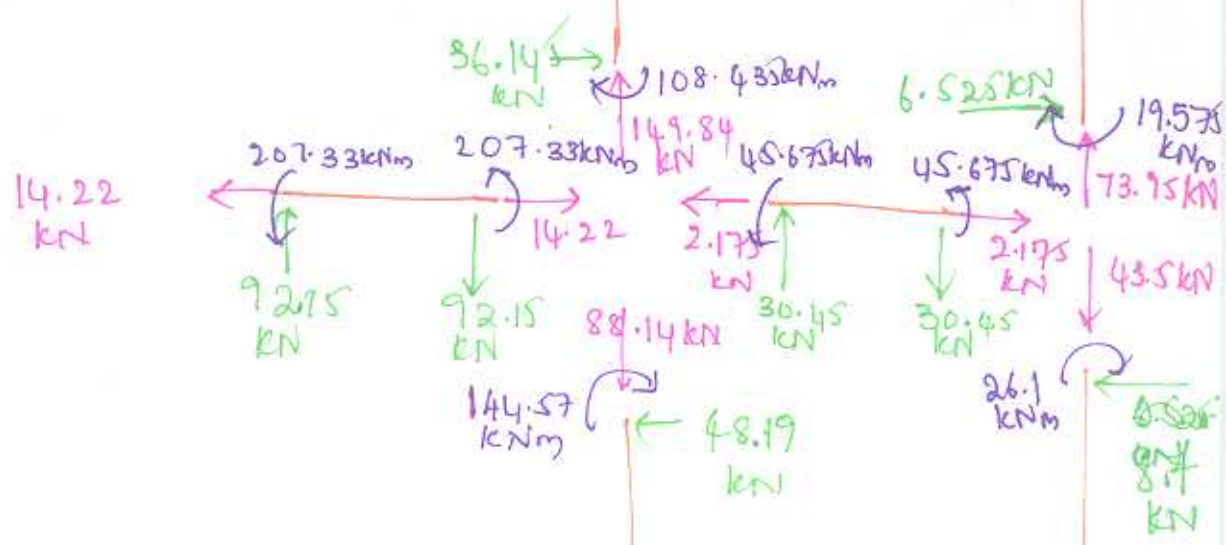 36.143
kN
108.435kNm
149.84
kN
6.525kN
19.575
kNm
73.95kN
207.33kNm
207.33kNm
45.675kNm
45.675kNm
14.22
kN
14.22
2.175
kN
2.175
kN
43.5kN
92.15
kN
92.15
kN
88.14kN
30.45
kN
30.45
kN
144.57
kNm
48.19
kN
26.1
kNm
8.7
kN